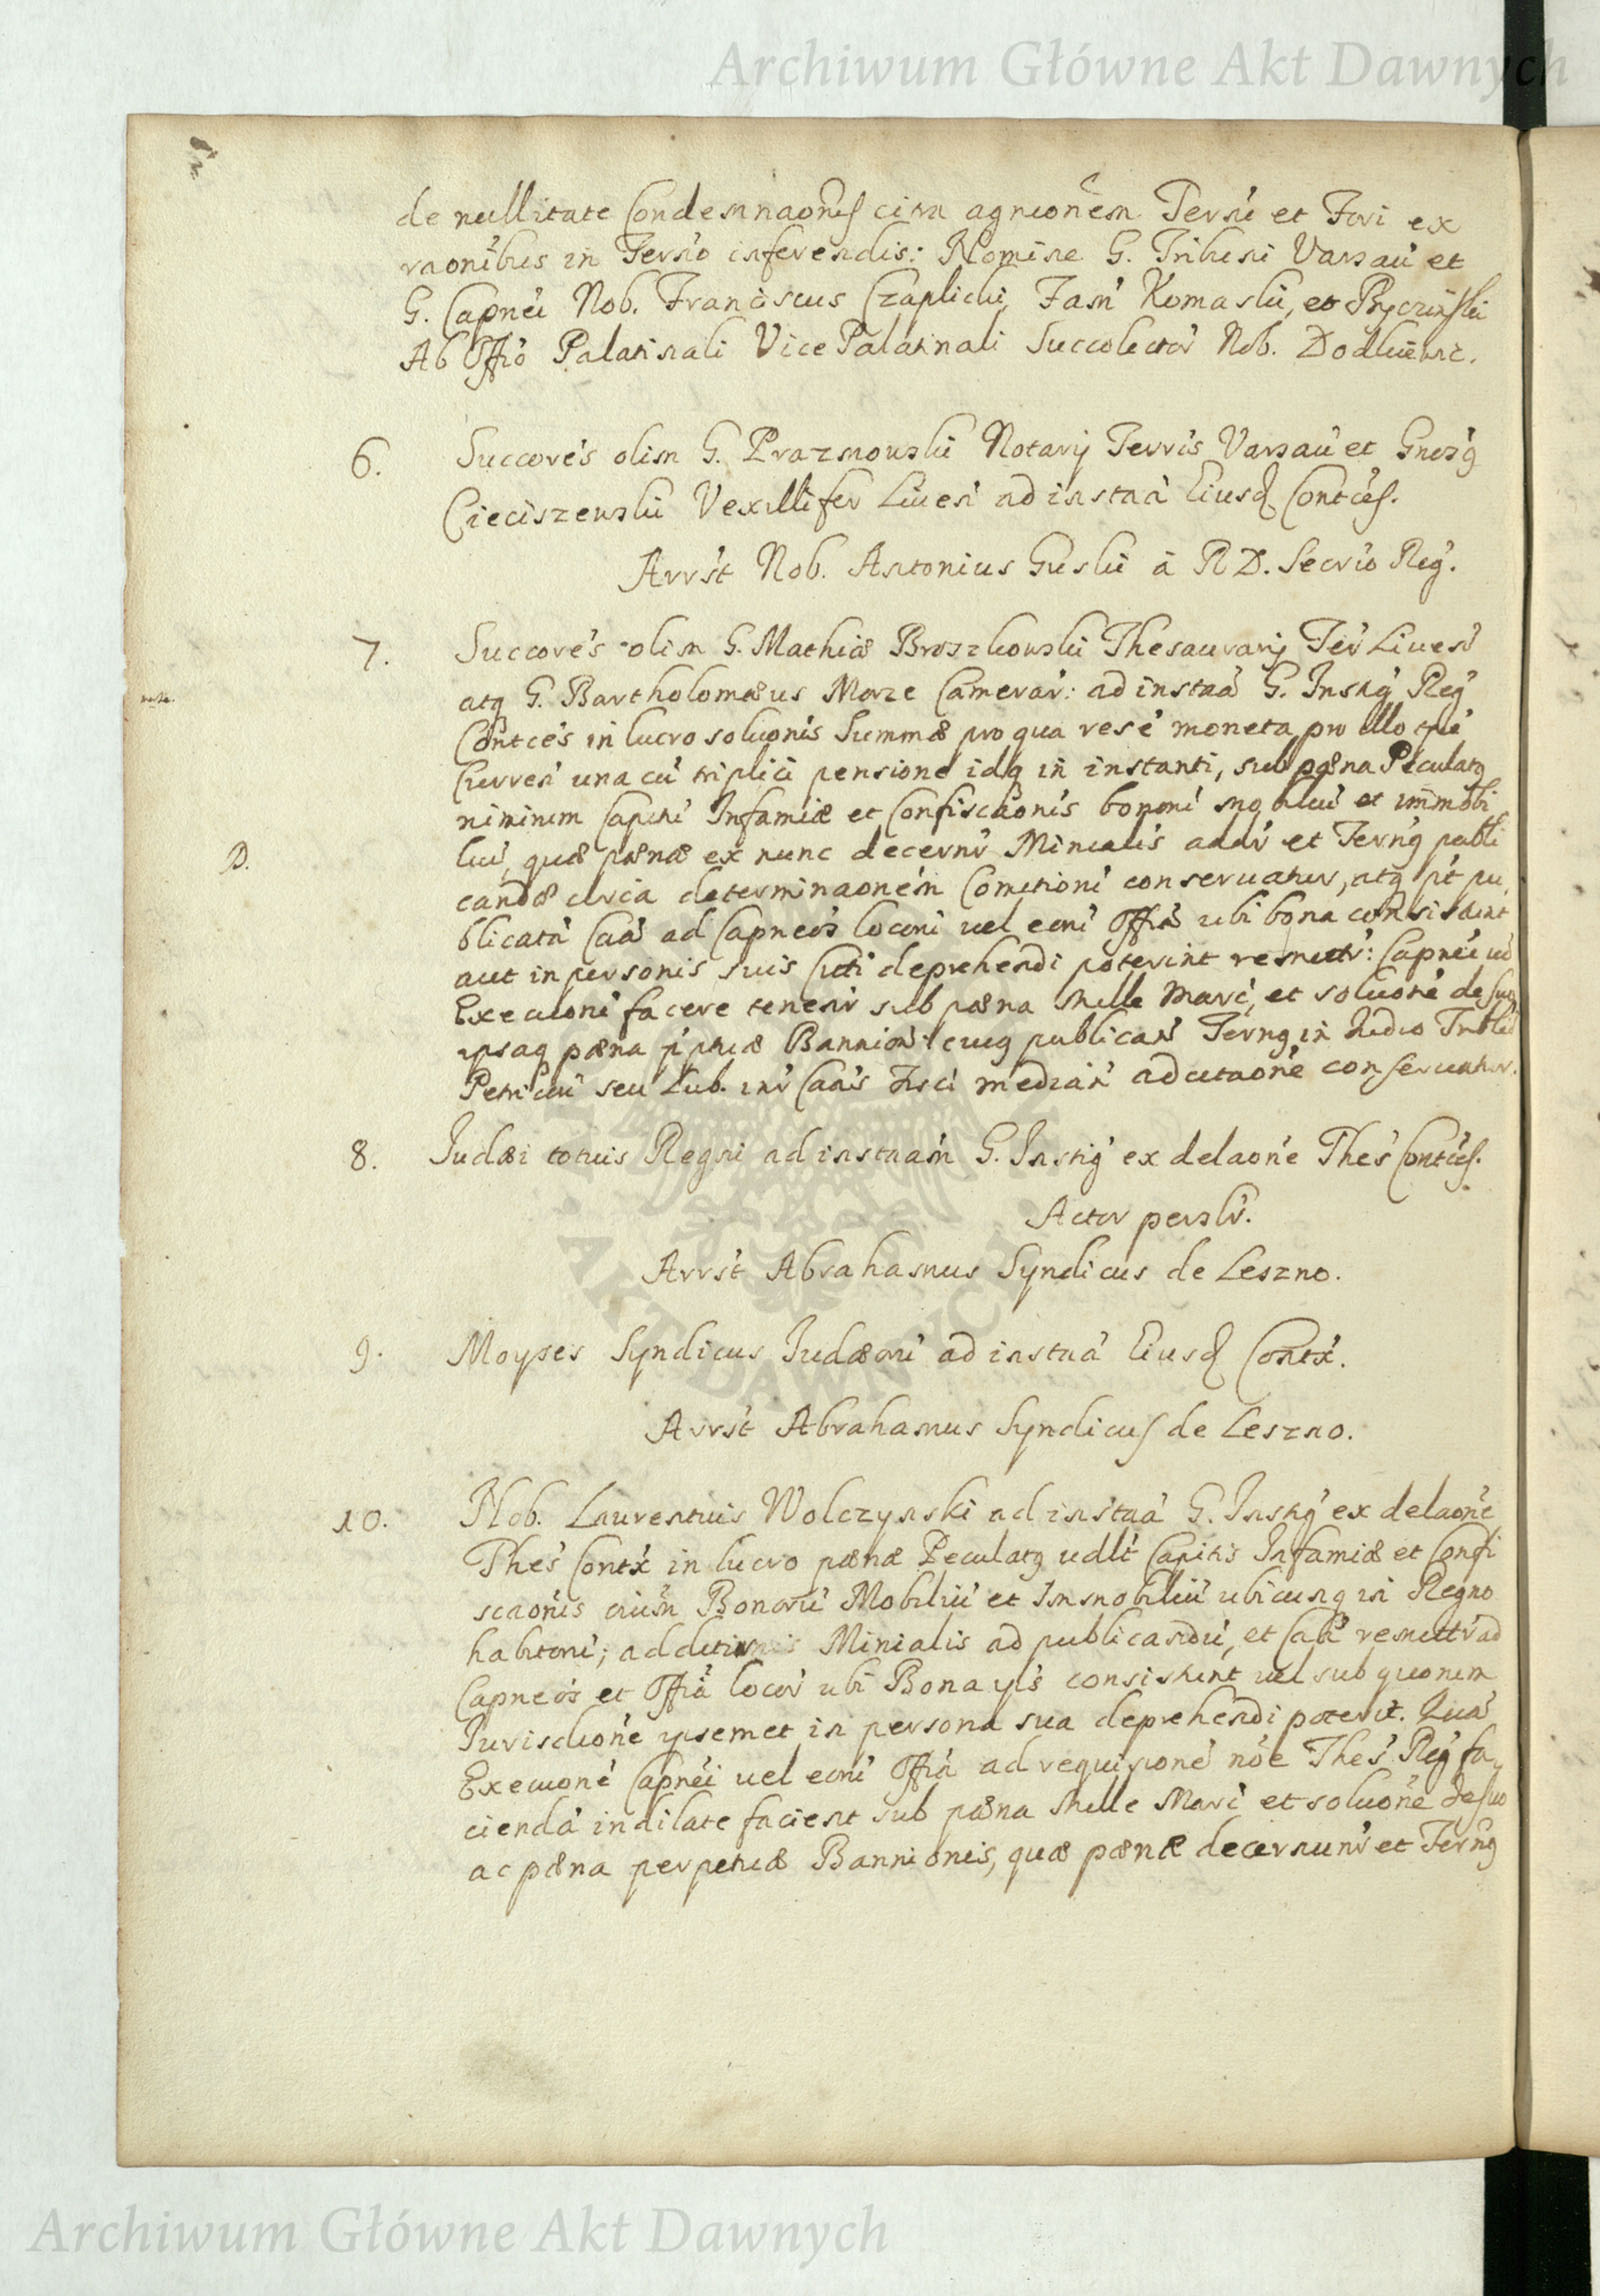 Archiwum Główne Akt Dawnych
de nullitate Condemnaonis citra agnionem Termi et Fori ex
raonibus in Termo inferendis: Nomine G. Tribuni Varsau et
G. Capnei Nob. Franciscus Czaplicki, Jasn Komaski, et
Ab Offio Palatinali Vice Palatinali Succolector Nob.
6. Succores olim G. Prazmowski Notarij Terris Varsau et Gnosg
Cieciszewski Vexillifer Liuen ad instaa Eiusd Contces.
Arrst Nob. Antonius Guski a R D. Secrio Reg.
7. Succores olim G. Mathiæ Broszkowski Thesaurarij Ter Liuens
atq G. Bartholomæus Morze Camerar: ad instaa G. Instig Reg
Contces in lucro soluonis Summæ pro qua rese moneta pro illo tpre
Curren una cu triplici pensione idq in instanti, sub pæna Peculatq
niminum Capitri Infamiæ et Confiscaonis bonoru mobiliu et immobi
D. liu, quæ pænæ ex nunc decernr Minialis addr et Ternq publi
candæ circa determinaonem Comitioru conseruatur, atq pt pu
blicata Caa ad Capneos locoru uel eoru Offia ubi bona consistunt
aut in personis suis Citi deprehendi poterint remittr: Capnei ud
Execuoni facere tenentr sub pæna Mille Marc, et soluone de suo
ipsaq pæna ppetuæ Bannionis cuiq publican Ternq in Judio Trblis
Petricou seu Lub. inr Caas Fisci median ad citaone conseruatur.
8. Judæi totius Regni ad instaam G. Instig ex delaone Thes Contces.
Actor perslr.
Arrst Abrahamus Syndicus de Leszno.
9. Moyses Syndicus Judæoru ad instaa Eiusd Contx.
Arrst Abrahamus Syndicus de Leszno.
10. Nob. Laurentius Wolczynski ad instaa G. Instig ex delaone
Thes Contx in lucro pænæ Peculatq udlt Capitis Infamiæ et Confi
scaonis oium Bonoru Mobiliu et Immobiliu ubicunq in Regno
habitoru; additi Minialis ad publicandu, et Caa remittr ad
Capneos et Offia locor ubi Bona ips consistunt uel sub quorum
Jurisdione ipsemet in persona sua deprehendi poterit. Qua
Execuone Capnei uel eoru Offia ad requisione noe Thes Reg fa
cienda indilate facient sub pæna Mille Marc et soluone de suo
ac pæna perpetuæ Bannionis, quæ pænæ decernunr et Ternq
Archiwum Główne Akt Dawnych